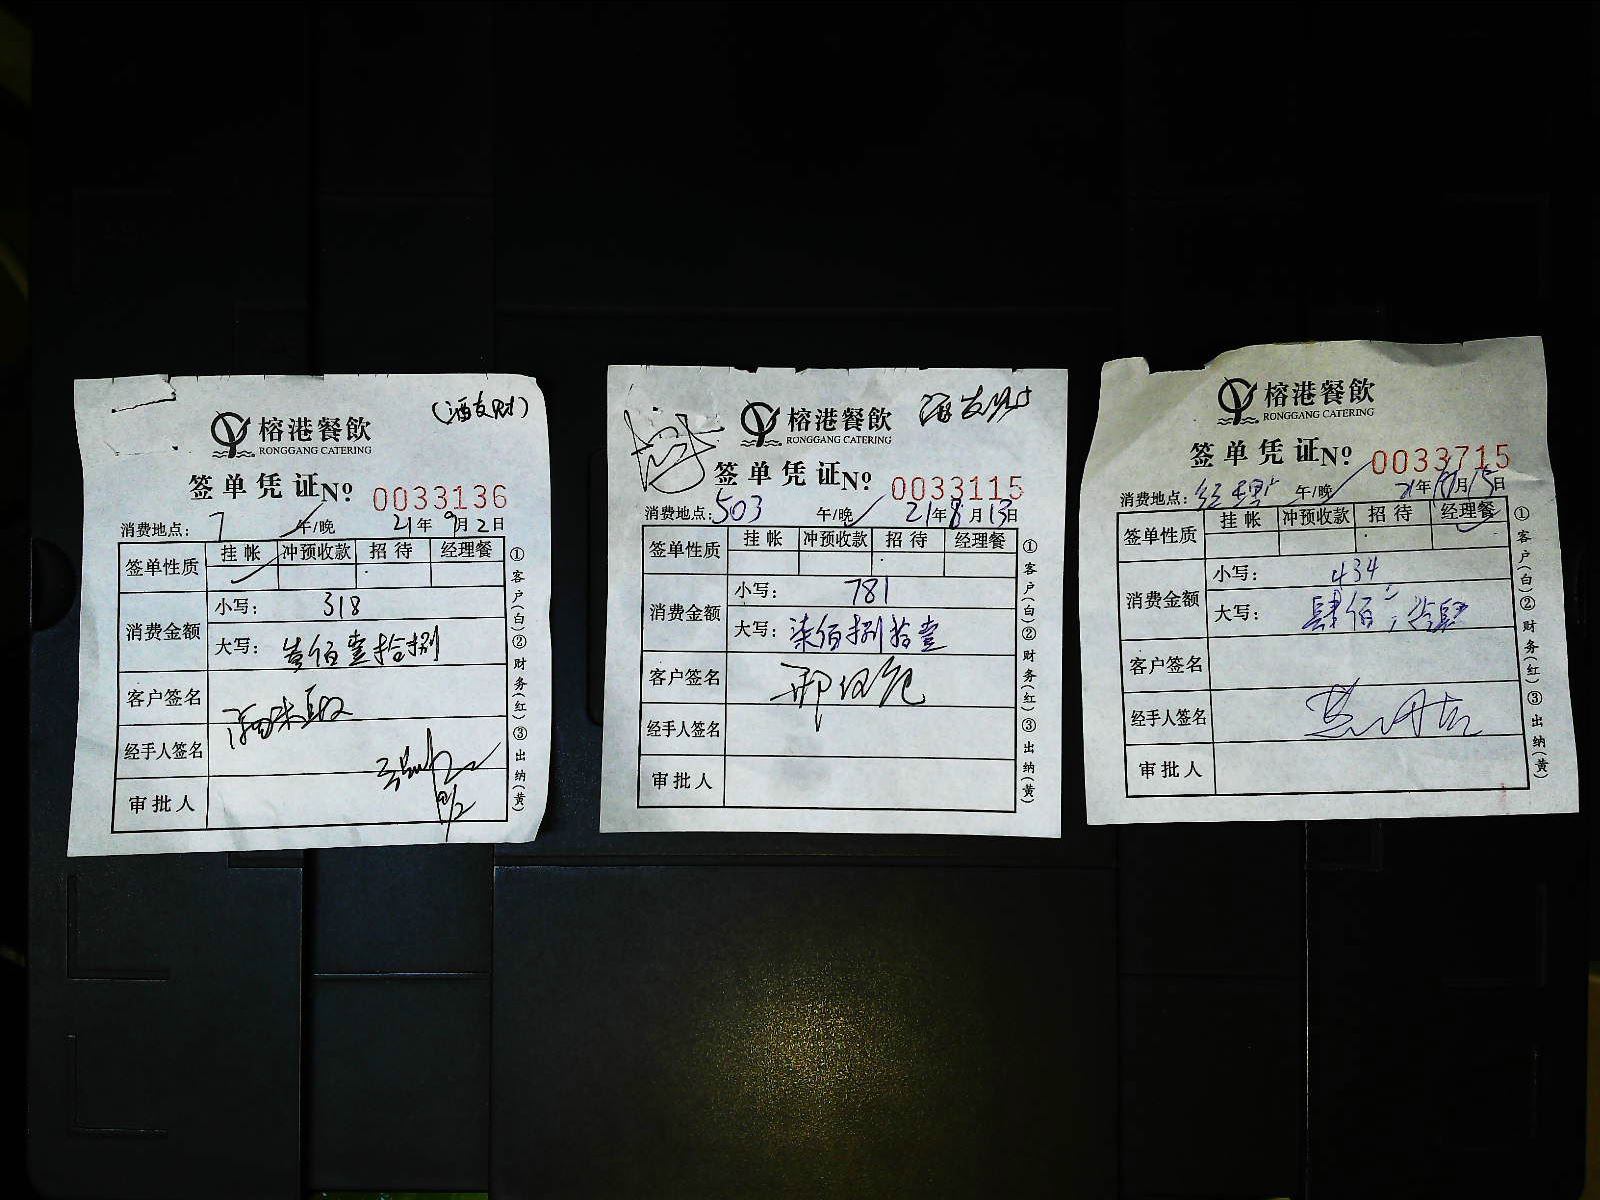 榕港餐飲
RONGGANG CATERING
签单凭证 No 0033136
消费地点: 7 午/晚 21年9月2日
签单性质 挂帐 冲预收款 招待 经理餐
消费金额 小写: 318
大写: 叁佰壹拾捌
客户签名
经手人签名
审批人
9/2
①客户(白)②财务(红)③出纳(黄)
榕港餐飲
RONGGANG CATERING
签单凭证 No 0033115
消费地点: 503 午/晚 21年8月13日
签单性质 挂帐 冲预收款 招待 经理餐
消费金额 小写: 781
大写: 柒佰捌拾壹
客户签名
经手人签名
审批人
①客户(白)②财务(红)③出纳(黄)
榕港餐飲
RONGGANG CATERING
签单凭证 No 0033715
消费地点: 经理 午/晚 21年 月15日
签单性质 挂帐 冲预收款 招待 经理餐
消费金额 小写: 434
大写: 肆佰 拾肆
客户签名
经手人签名
审批人
①客户(白)②财务(红)③出纳(黄)